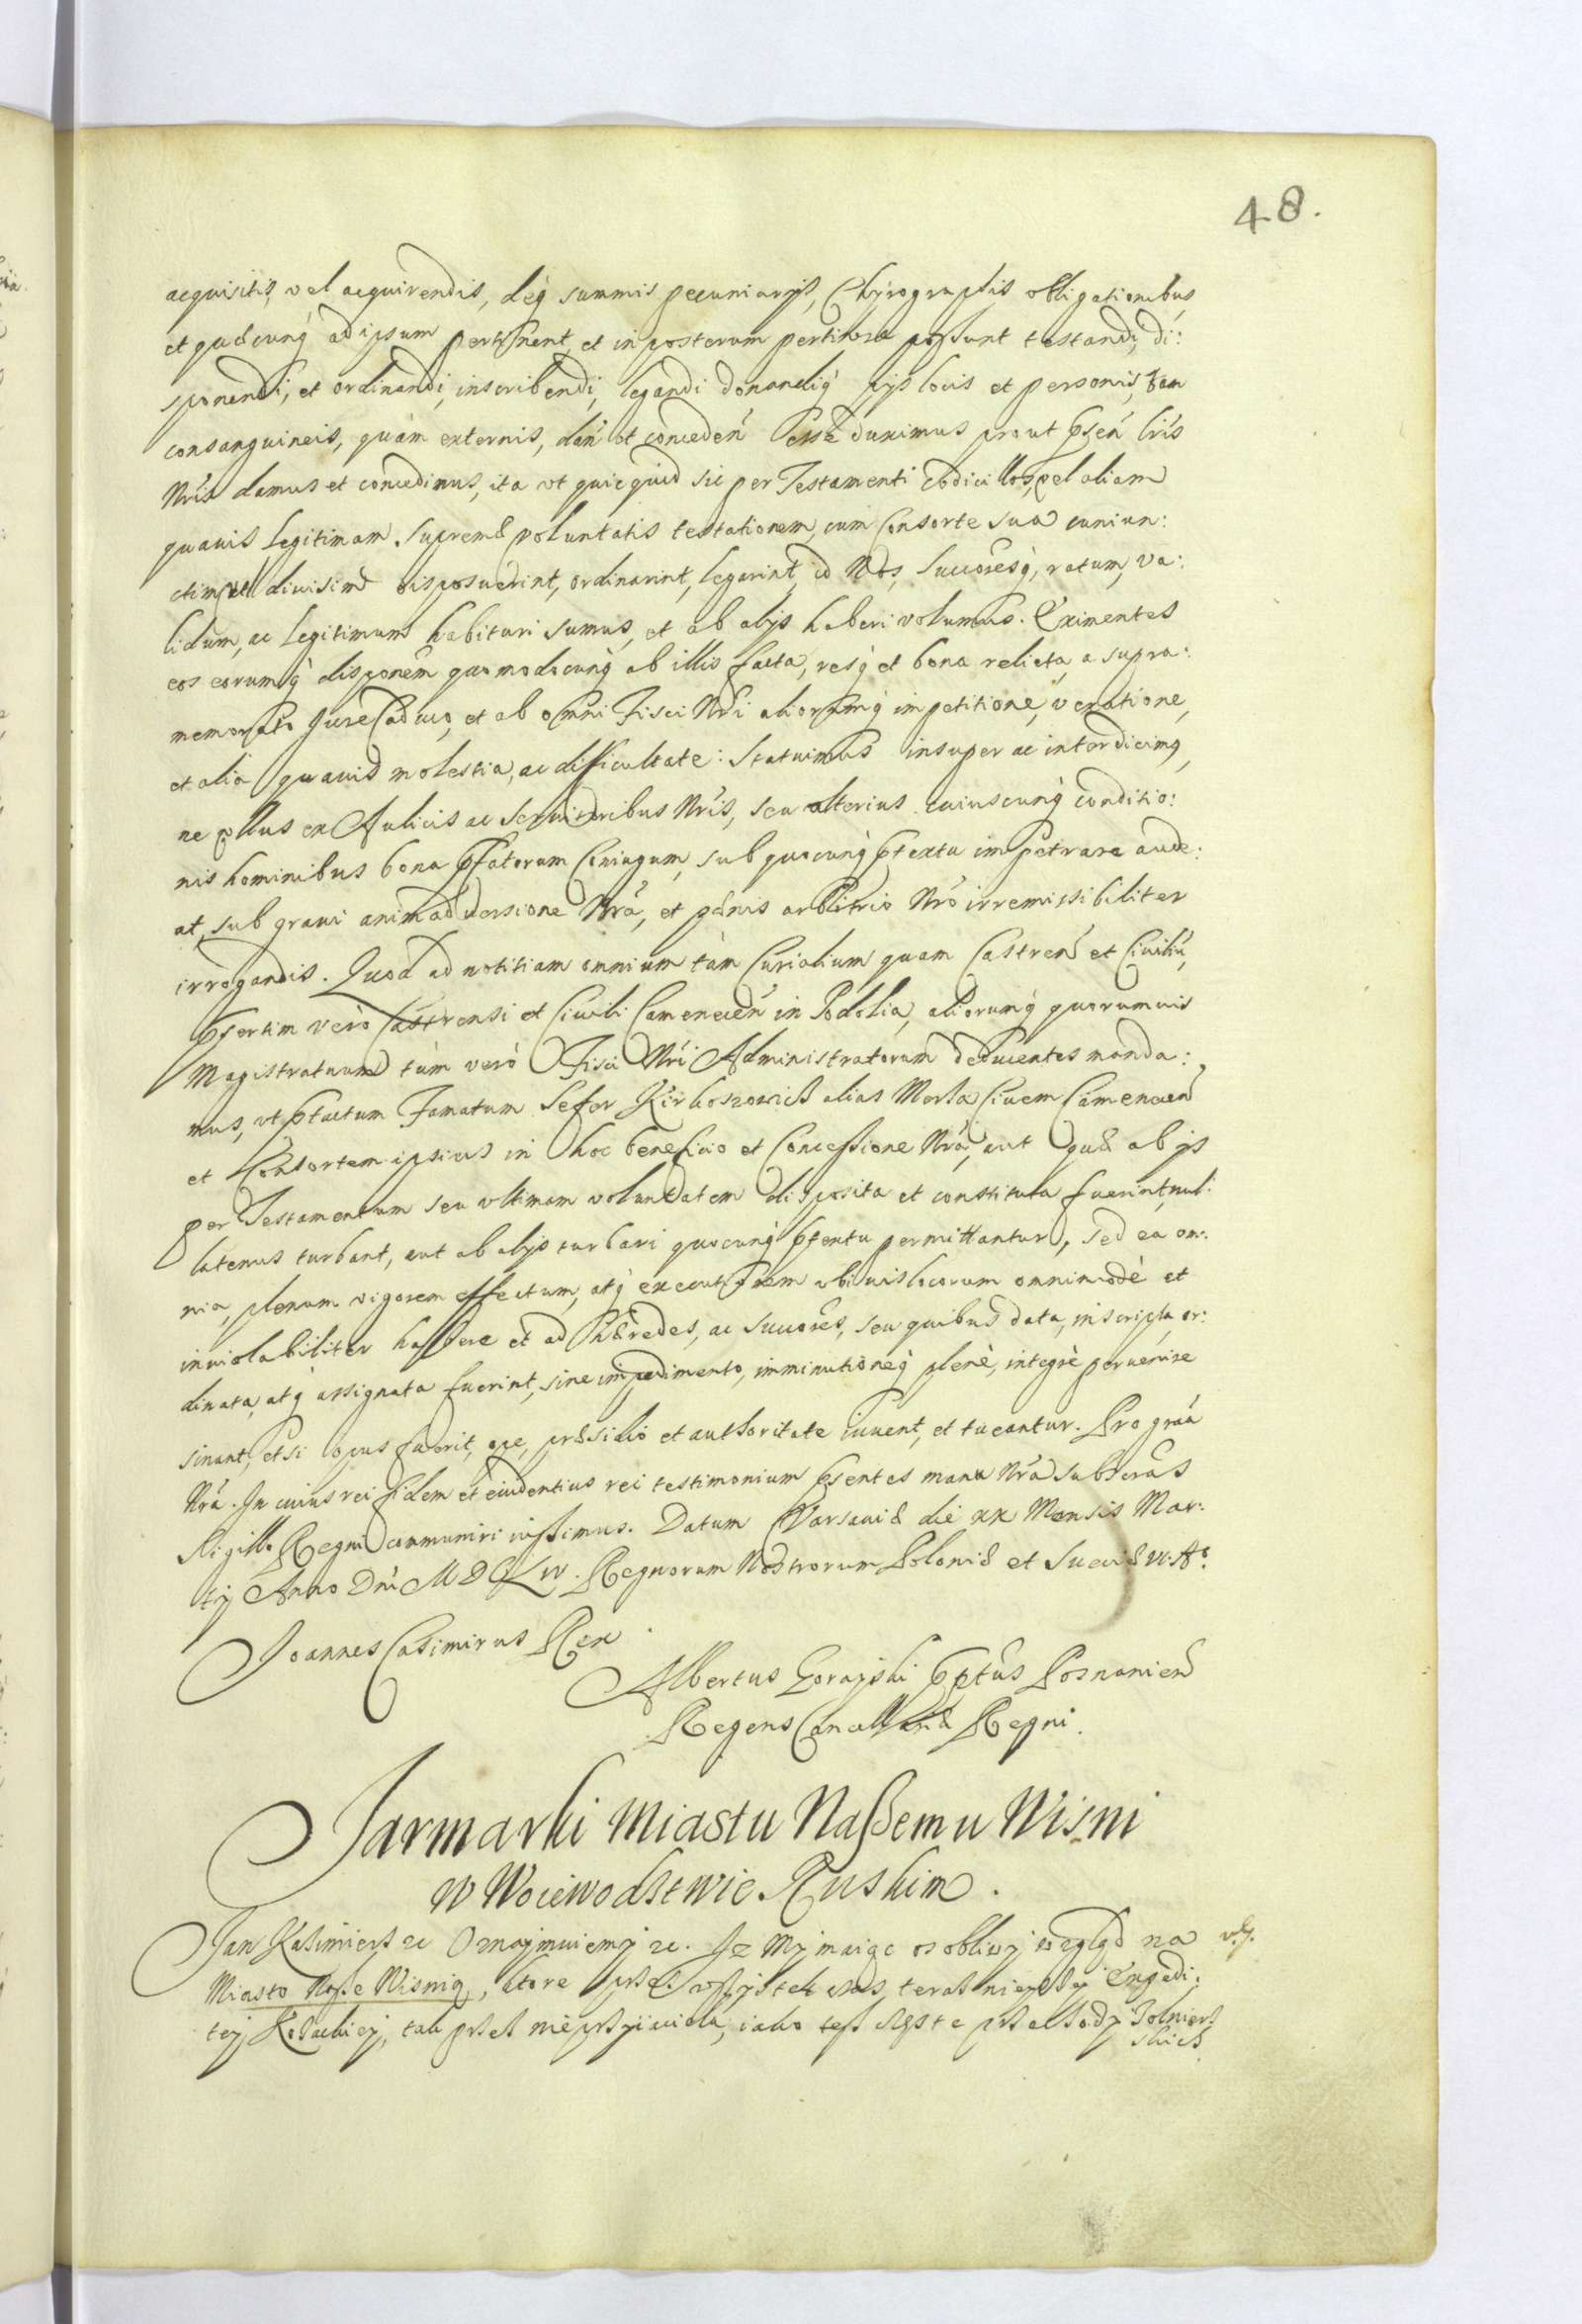 48.
acquisitis, vel acquirendis, deq́ summis pecuniarijs, Chyrographis obligationibus,
et quaecunq́ ad ipsum pertinent, et in posterum pertinere possunt testandi, di:
sponendi, et ordinandi, inscribendi, legandi donandiq́ pijs locis et personis, tam
consanguineis, quàm externis, dań et concedeń esse duximus prout pseń lris
Nris damus et concedimus, ita vt quicquid sic per Testamenti Codicillos, vel aliam
quamuis legitimam supremae voluntatis testationem, cum Consorte sua coniun:
ctim vel diuisim disposuerint, ordinarint, legarint, id Nos, Succoresq́, ratum, va:
lidum, ac legitimum habituri sumus, et ab alijs haberi volumus. Eximentes
eos eorumq́ disponem quomodocunq́ ab illis facta, resq́ et bona relicta, a supra:
memorato Jure Caduco, et ab omni Fisci Nri aliorumq́ impetitione, vexatione,
et alia quauis molestia, ac difficultate: Statuimus insuper ac interdicimus,
ne ullus ex Aulicis ac Seruitoribus Nris, seu alterius cuiuscunq́ conditio:
nis hominibus bona pfatorum Coniugum, sub quocunq́ ptextu impetrare aude:
at, sub graui animaduersione Nra, et paenis arbitrio Nro irremissibiliter
irrogandis. Quod ad notitiam omnium tàm Curialium quam Castreń et Ciuiliu,
psertim verò Castrensi et Ciuili Cameneceń in Podolia, aliorumq́ quorumuis
Magistratuum tùm verò Fisci Nri Administratorum deducentes manda:
mus, vt ptactum Famatum Sefer Kirkoszowicz alias Morla Ciuem Cameneceń
et Consortem ipsius in hoc beneficio et Concessione Nra, aut quae ab ijs
per Testamentum seu vltimam voluntatem disposita et constituta fuerint, nul:
latenus turbent, aut ab alijs turbari quocunq́ ptextu permittantur, sed ea om:
nia, plenum vigorem effectum, atq́ executionem vbiuis locorum omnimodè et
inuiolabiliter habere et ad haeredes, ac Succores, seu quibus data, inscripta, or:
dinata, atq́ assignata fuerint, sine impedimento, imminutioneq́ plenè, integrè peruenire
sinant, et si opus fuerit, ope, praesidio et authoritate iuuent, et tueantur. Pro gráa
Nrá. In cuius rei fidem et euidentius rei testimonium psentes manu Nra subscras
Sigillo Regni communiri iussimus. Datum Varsauiae die xx Mensis Mar:
tij Anno Dni MDCLIV. Regnorum Nostrorum Poloniae et Sueciae VI. Ao.
Joannes Casimirus Rex.
Albertus Gorayski Pptus Posnanień
Regens Cancellariae Regni.
Jarmarki Miastu Naszemu Wisni
w Woiewodstwie Ruskim.
Jan Kazimierz etc Oznaymuiemy etc. Jz My maiąc osobliwy wzgląd na
Miasto Nasze Wisnią, ktore przez wszystek czas terazniejszey Expedi:
tey Kozackiey, tak przez nieprzyiaciela, iako tesz częste przechody Zolnierz
skich